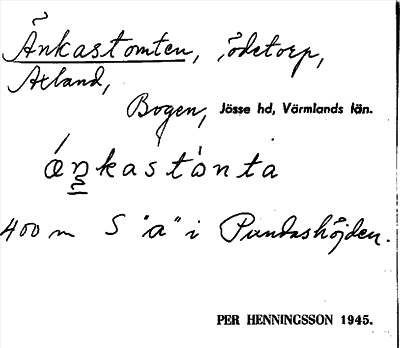 Änkastomten, ödetorp,
Axland,
Bogen, Jösse hd, Värmlands län.
áṉkastònta
400 m S "a" i Pundashöjden.
PER HENNINGSSON 1945.